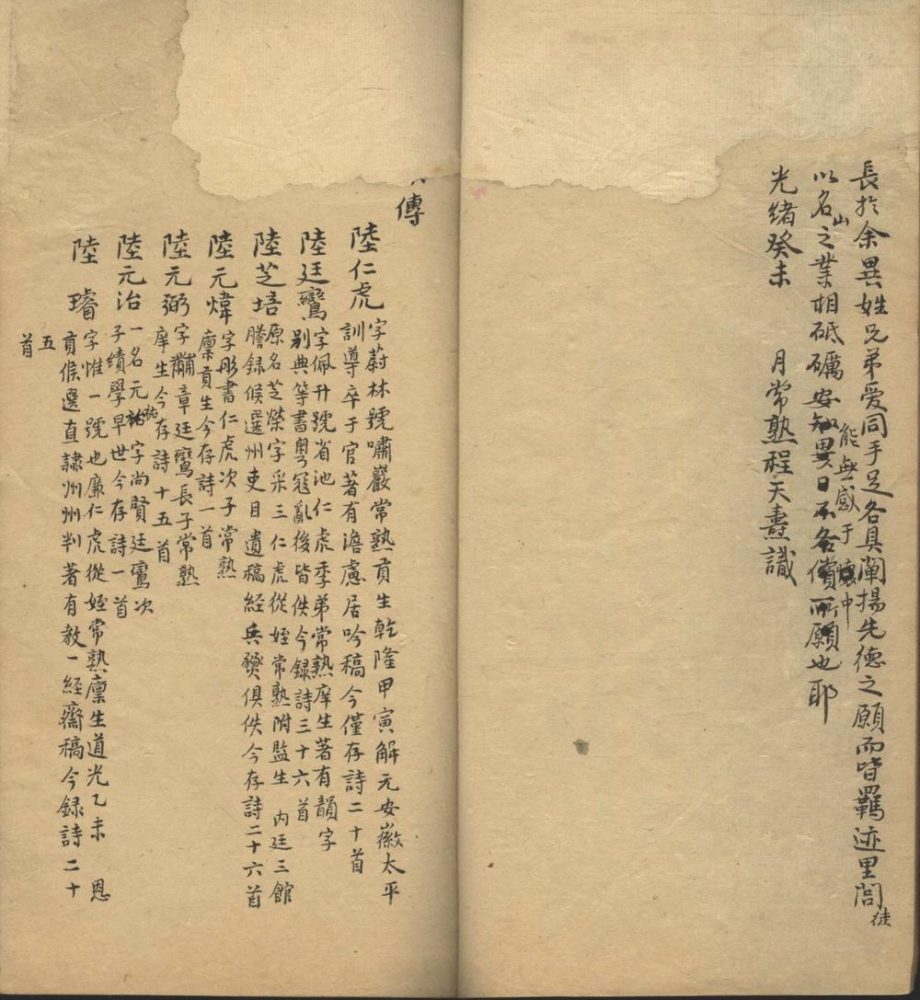 長於余異姓兄弟愛同手足各具闡揚先德之願而皆羈迹里閭徒
以名山之業相砥礪安知異日不各償所願也耶
能無感于懷中
光緒癸未 月常熟程天燾識
傳
陸仁虎 字蔚林號嘯巖常熟貢生乾隆甲寅解元安徽太平
訓導卒于官著有澹慮居吟稿今僅存詩二十首
陸廷鸞 字佩升號省池仁虎季弟常熟庠生著有韻字
別典等書粵寇亂後皆佚今録詩三十六首
陸芝培 原名芝榮字采三仁虎從姪常熟附監生 內廷三館
謄録候選州吏目遺稿經兵燹俱佚今存詩二十六首
陸元煒 字彤書仁虎次子常熟
廩貢生今存詩一首
陸元弼 字黼章廷鸞長子常熟
庠生今存詩十五首
陸元治 一名元祐字尚賢廷鸞次
子績學早世今存詩一首
陸 璿 字惟一號也廉仁虎從姪常熟廩生道光乙未 恩
貢候選直隸州州判著有教一經齋稿今録詩二十
五首